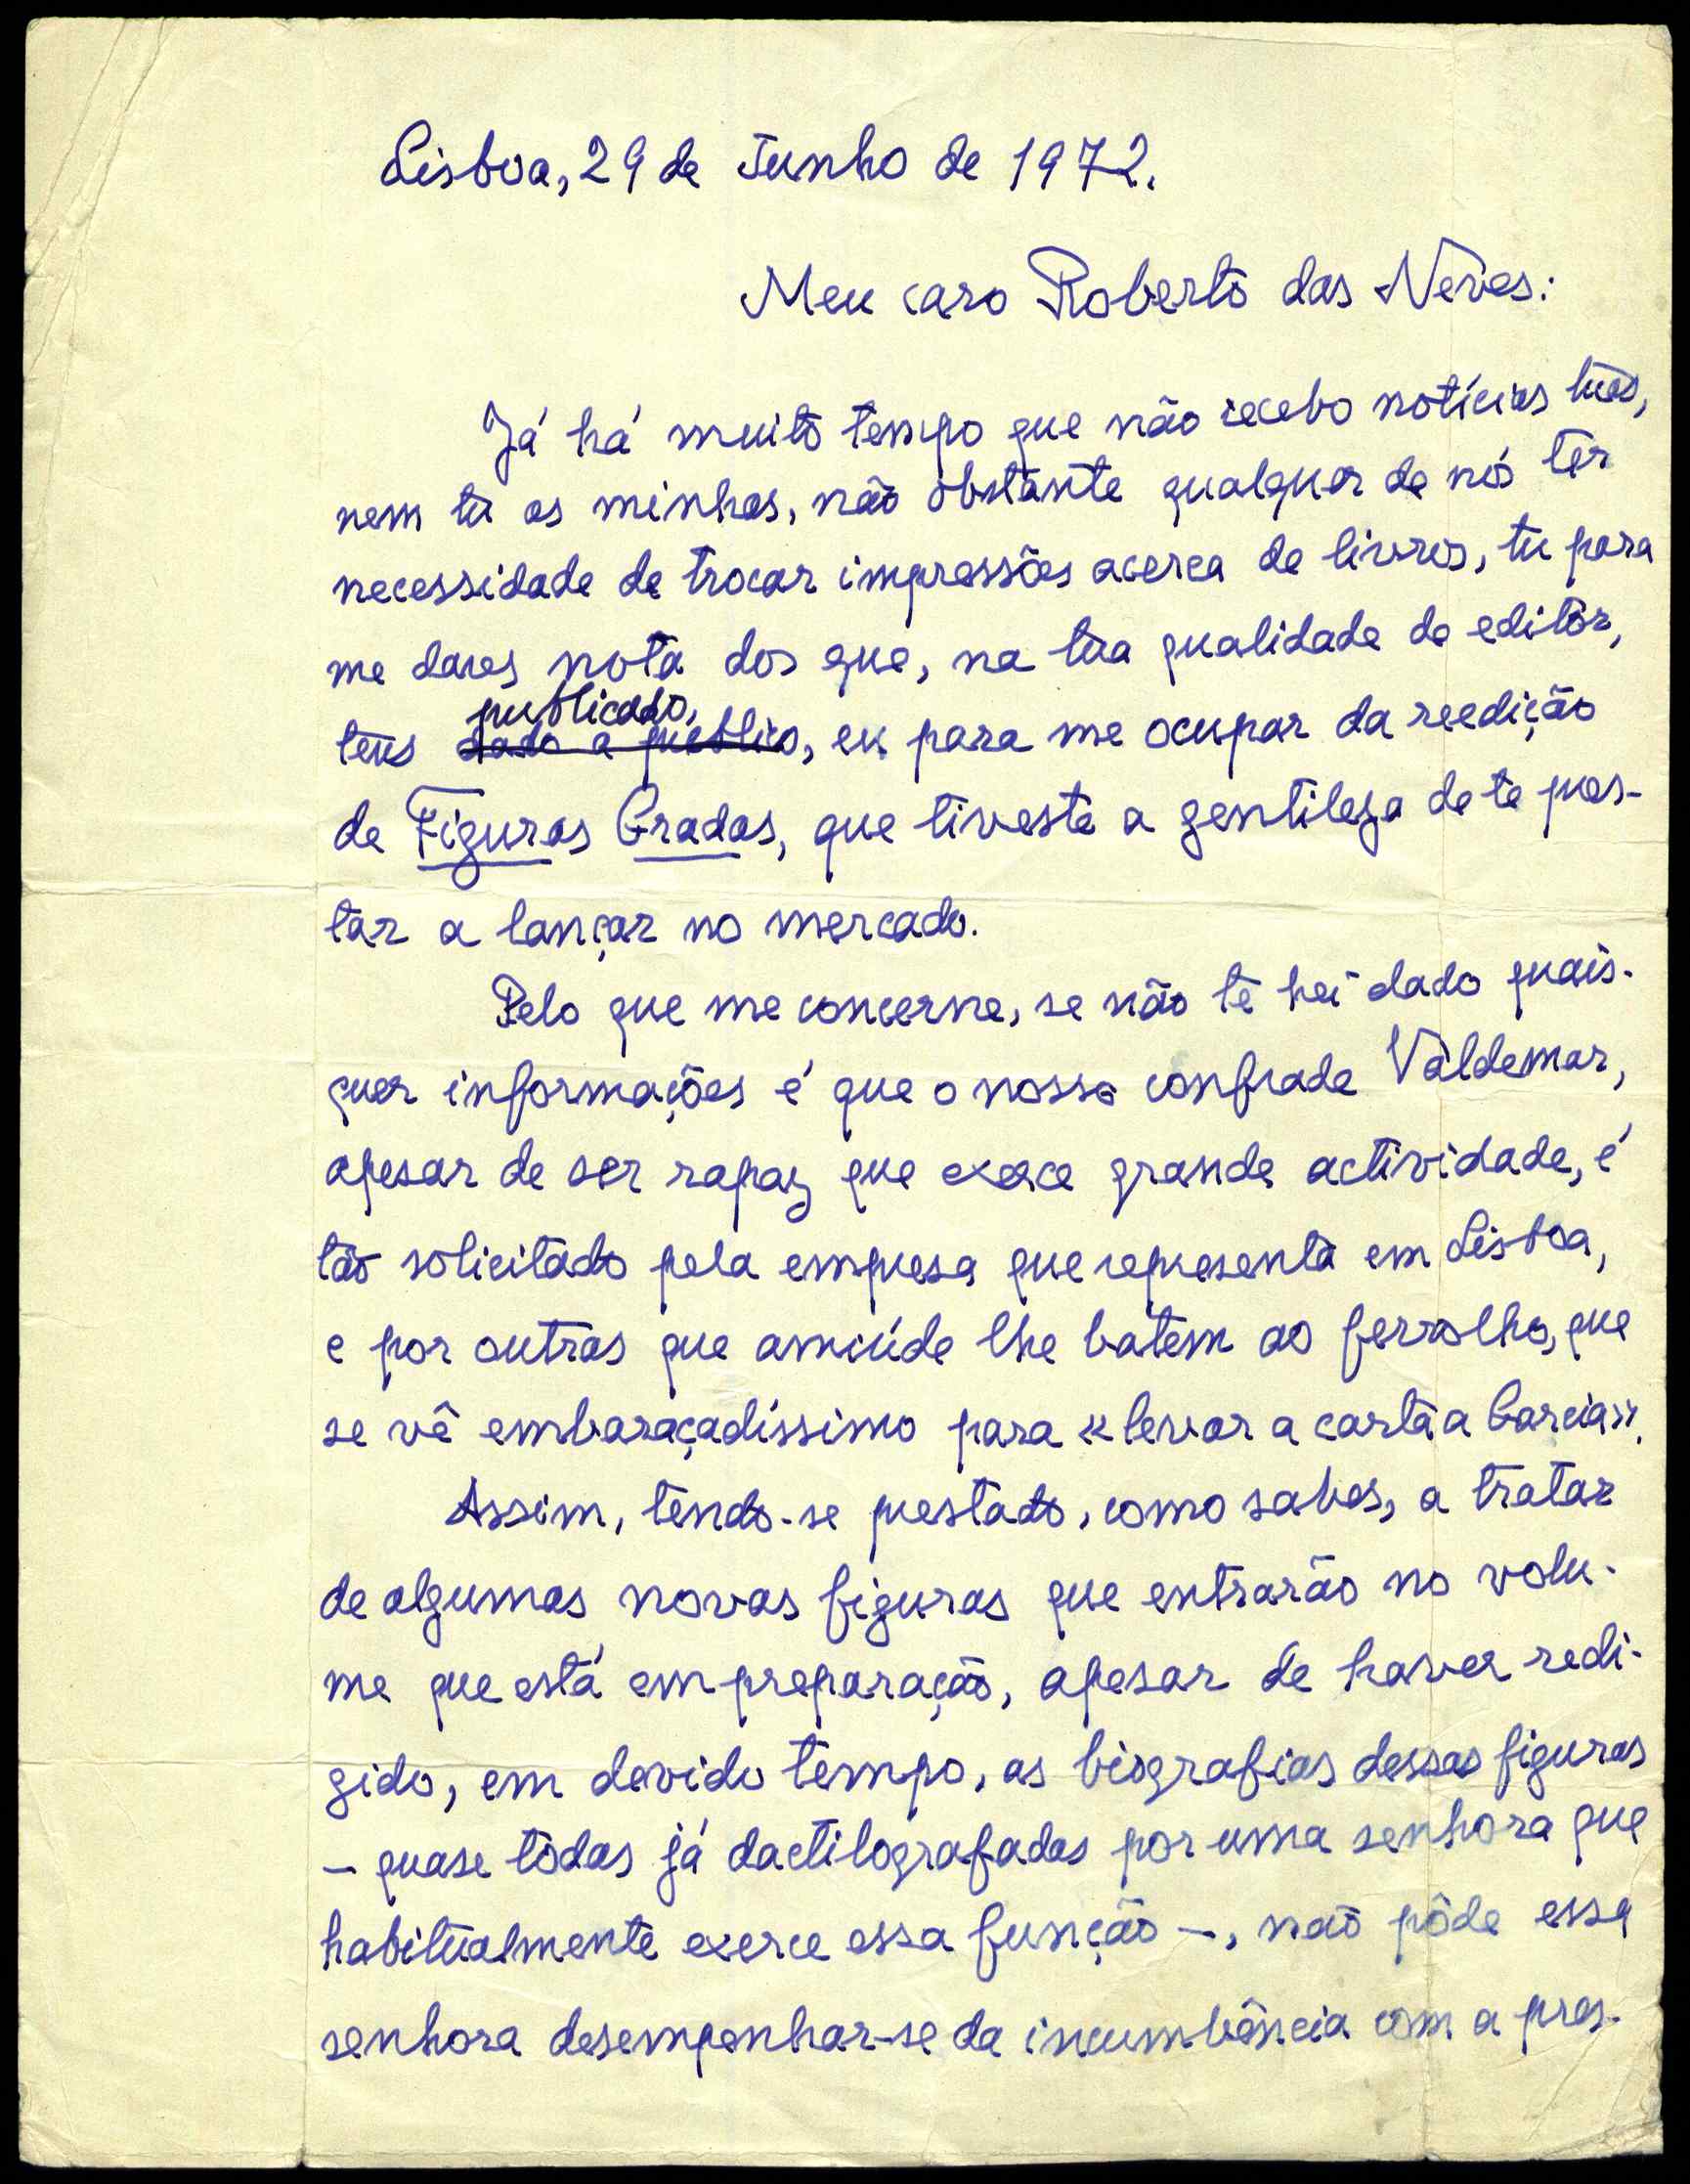 Lisboa, 29 de Junho de 1972.
Meu caro Roberto das Neves:
Já há muito tempo que não recebo notícias tuas,
nem tu as minhas, não obstante qualquer de nós ter
necessidade de trocar impressões acerca de livros, tu para
me dares nota dos que, na tua qualidade de editor,
publicado,
tens dado a público, eu para me ocupar da reedição
de Figuras Gradas, que tiveste a gentileza de te pres-
tar a lançar no mercado.
Pelo que me concerne, se não te hei dado quais-
quer informações é que o nosso confrade Valdemar,
apesar de ser rapaz que exerce grande actividade, é
tão solicitado pela empresa que representa em Lisboa,
e por outras que amiúde lhe batem ao ferrolho, que
se vê embaraçadíssimo para «levar a carta a Garcia».
Assim, tendo-se prestado, como sabes, a tratar
de algumas novas figuras que entrarão no volu-
me que está em preparação, apesar de haver redi-
gido, em devido tempo, as biografias dessas figuras
– quase tôdas já dactilografadas por uma senhora que
habitualmente exerce essa função –, não pôde essa
senhora desempenhar-se da incumbência com a pres-